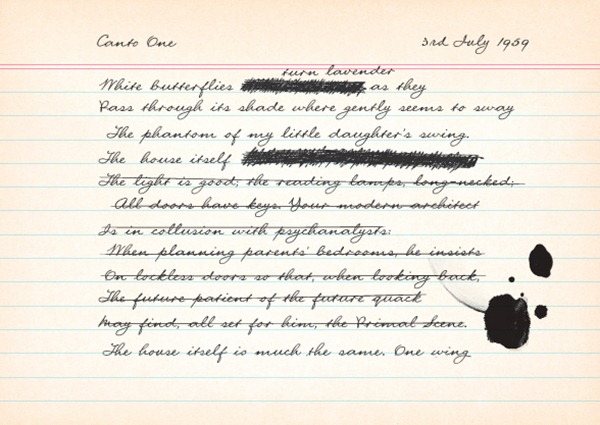 Canto One 3rd July 1959
turn lavender
White butterflies as they
Pass through its shade where gently seems to sway
The phantom of my little daughter's swing.
The house itself
The light is good; the reading lamps, long-necked;
All doors have keys. Your modern architect
Is in collusion with psychanalysts:
When planning parents' bedrooms, he insists
On lockless doors so that, when looking back,
The future patient of the future quack
May find, all set for him, the Primal Scene.
The house itself is much the same. One wing